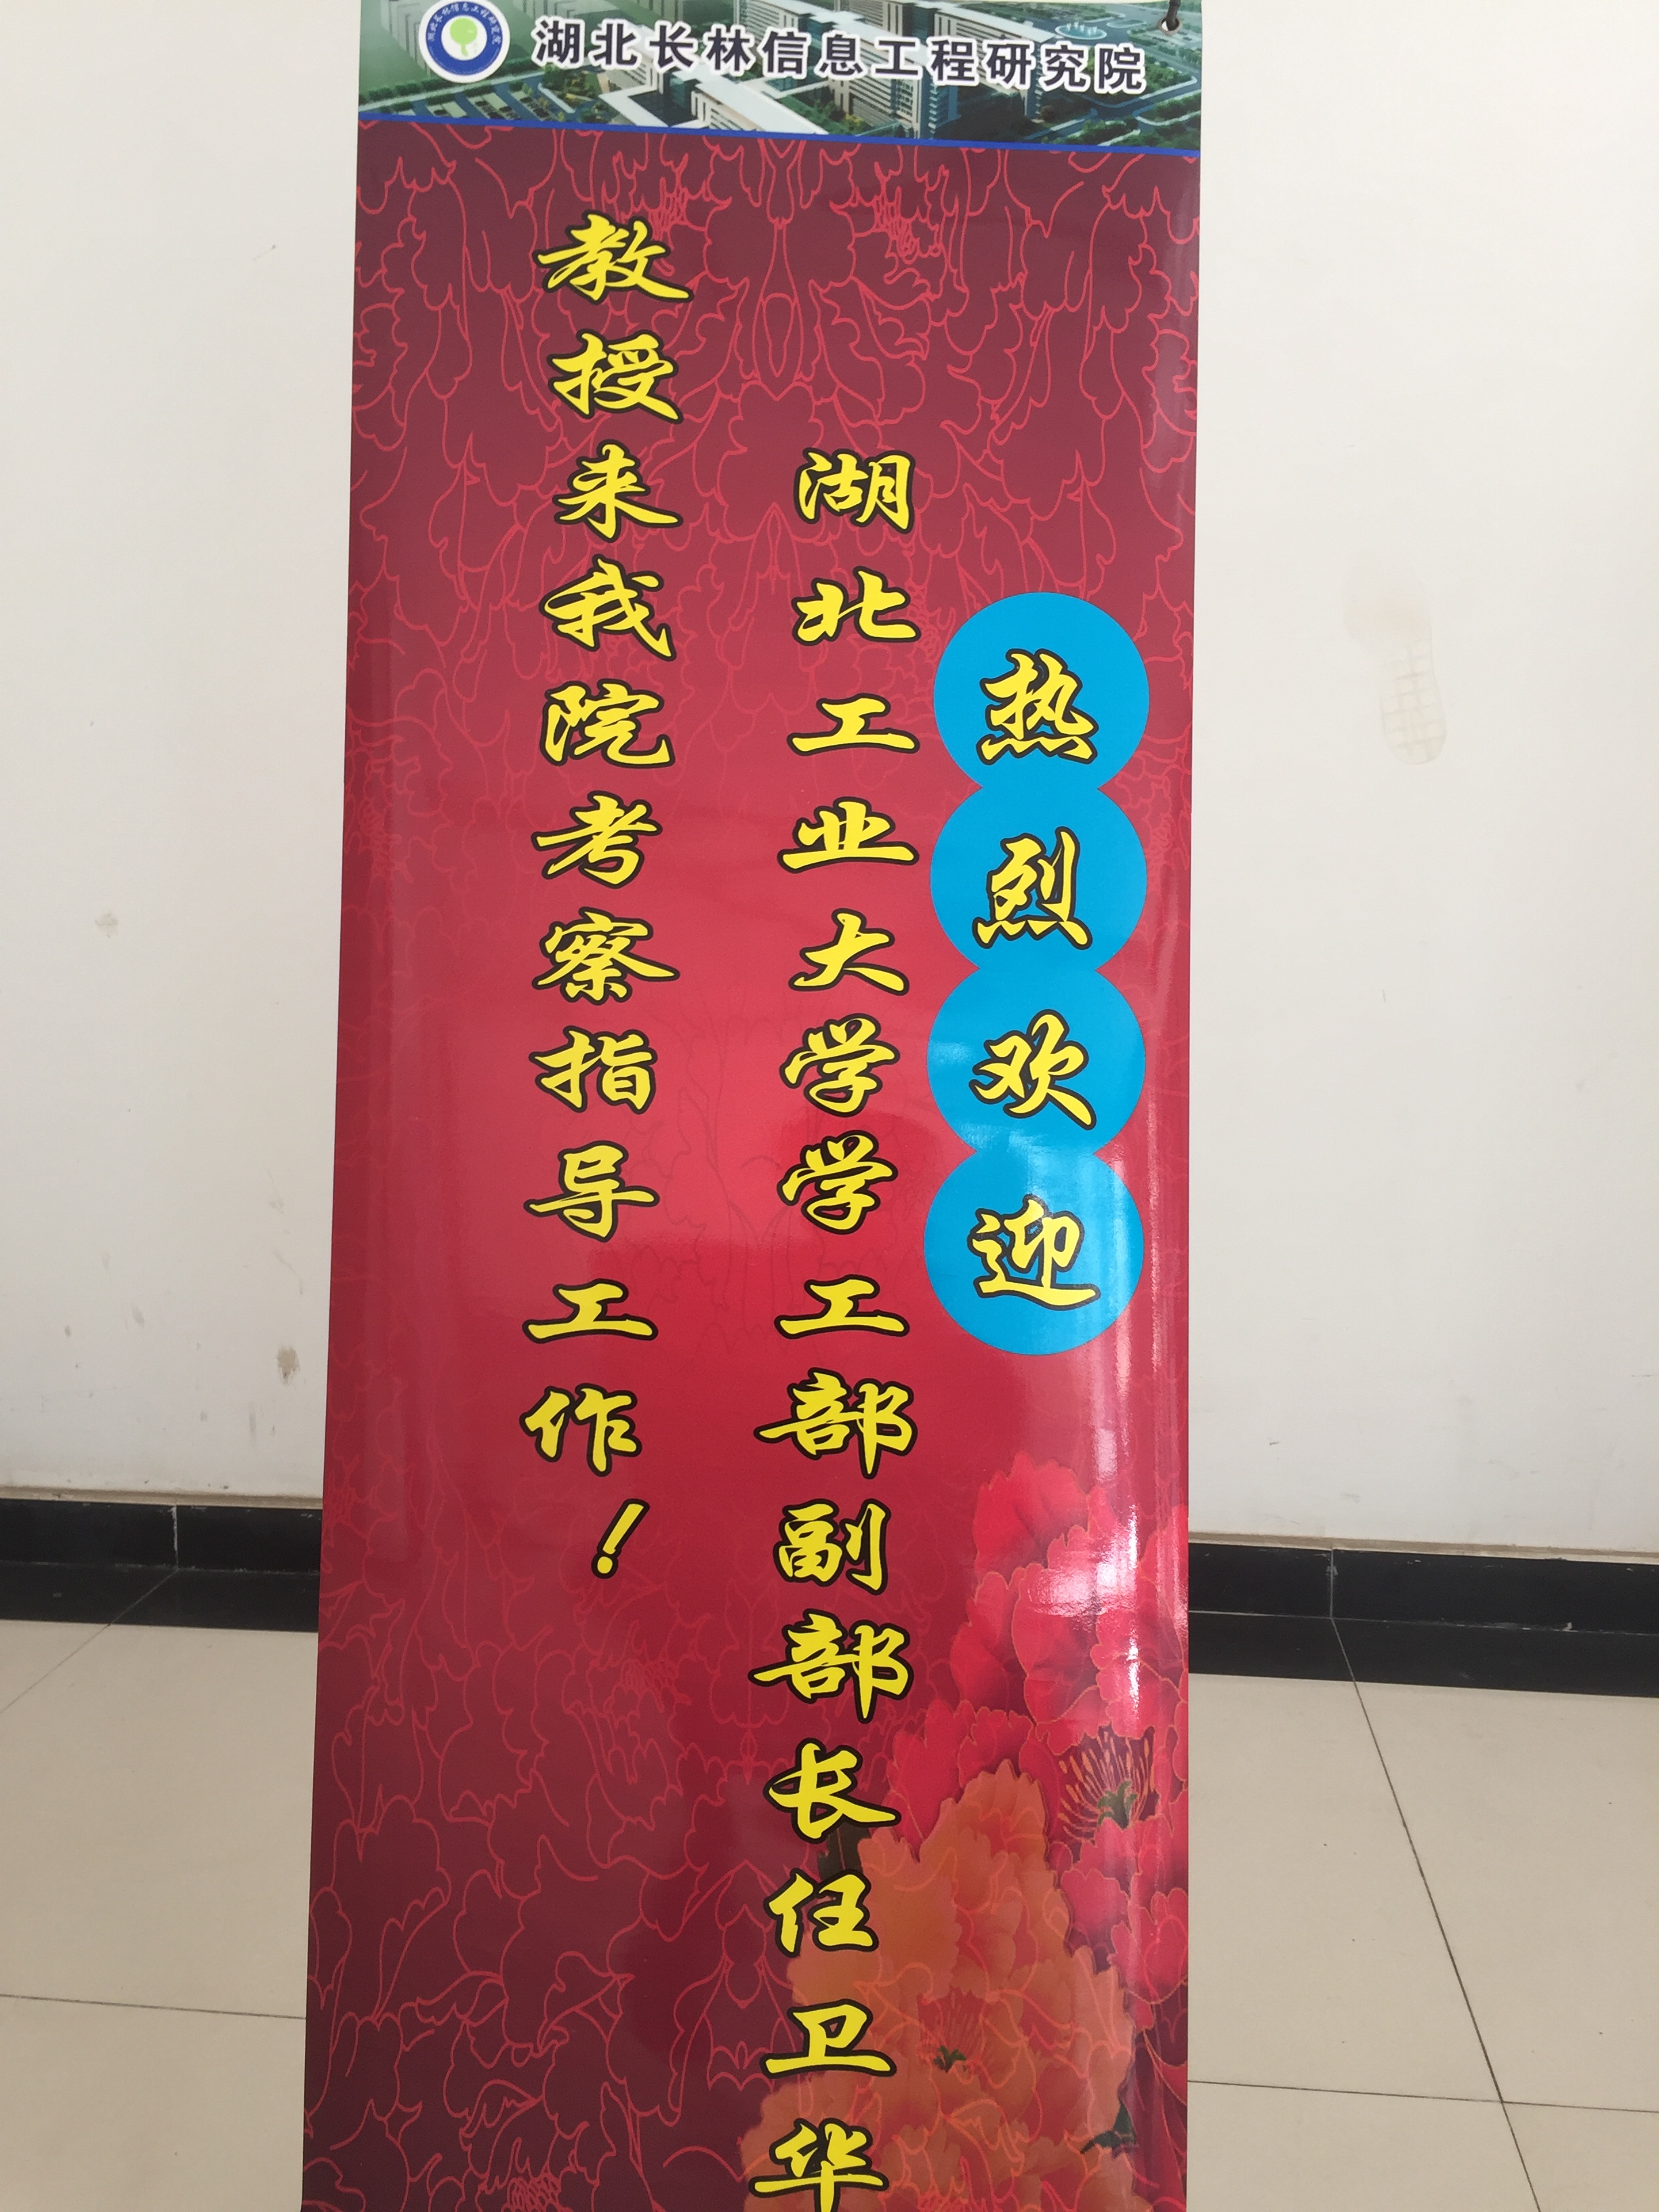 湖北长林信息工程研究院
热烈欢迎
湖北工业大学学工部副部长任卫华
教授来我院考察指导工作！